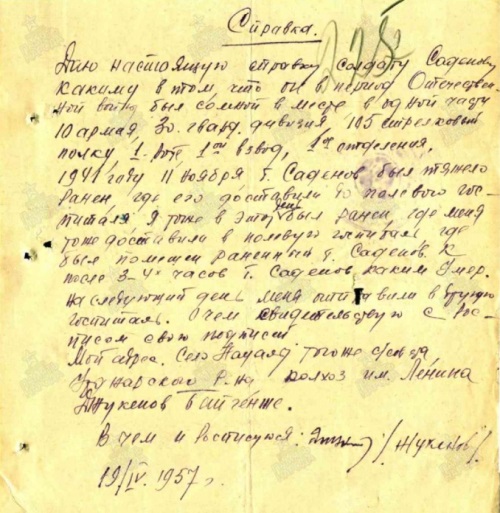 Справка.
252
Даю настоящую справку солдату Саденову
Какиму в том, что он в период Отечествен-
ной войны был со мной в месте в одной части
10 армия, 30. гвард. дивизия, 105 стрелковый
полку, 1. роте 1ой взвод, 1ое отделения,
1941 году 11 ноября т. Саденов был тяжело
ранен, где его доставили до полевого гос-
питаля. Я тоже в этот день был ранен, где меня
тоже доставили в полевую госпиталь где
был помещен раненный т. Саденов. К
после 3-4х часов т. Саденов Каким умер.
На следующий день меня отправили в другую
госпиталь. О чем свидетельствую с рос-
писом свою подписий
Мой адрес. Село тогоже с/совета
р-на колхоз им. Ленина
Джукенов
В чем и Росписуюсь: /Жукенов/.
19/IV. 1957 г.